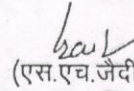 (एस.एच.जैदी